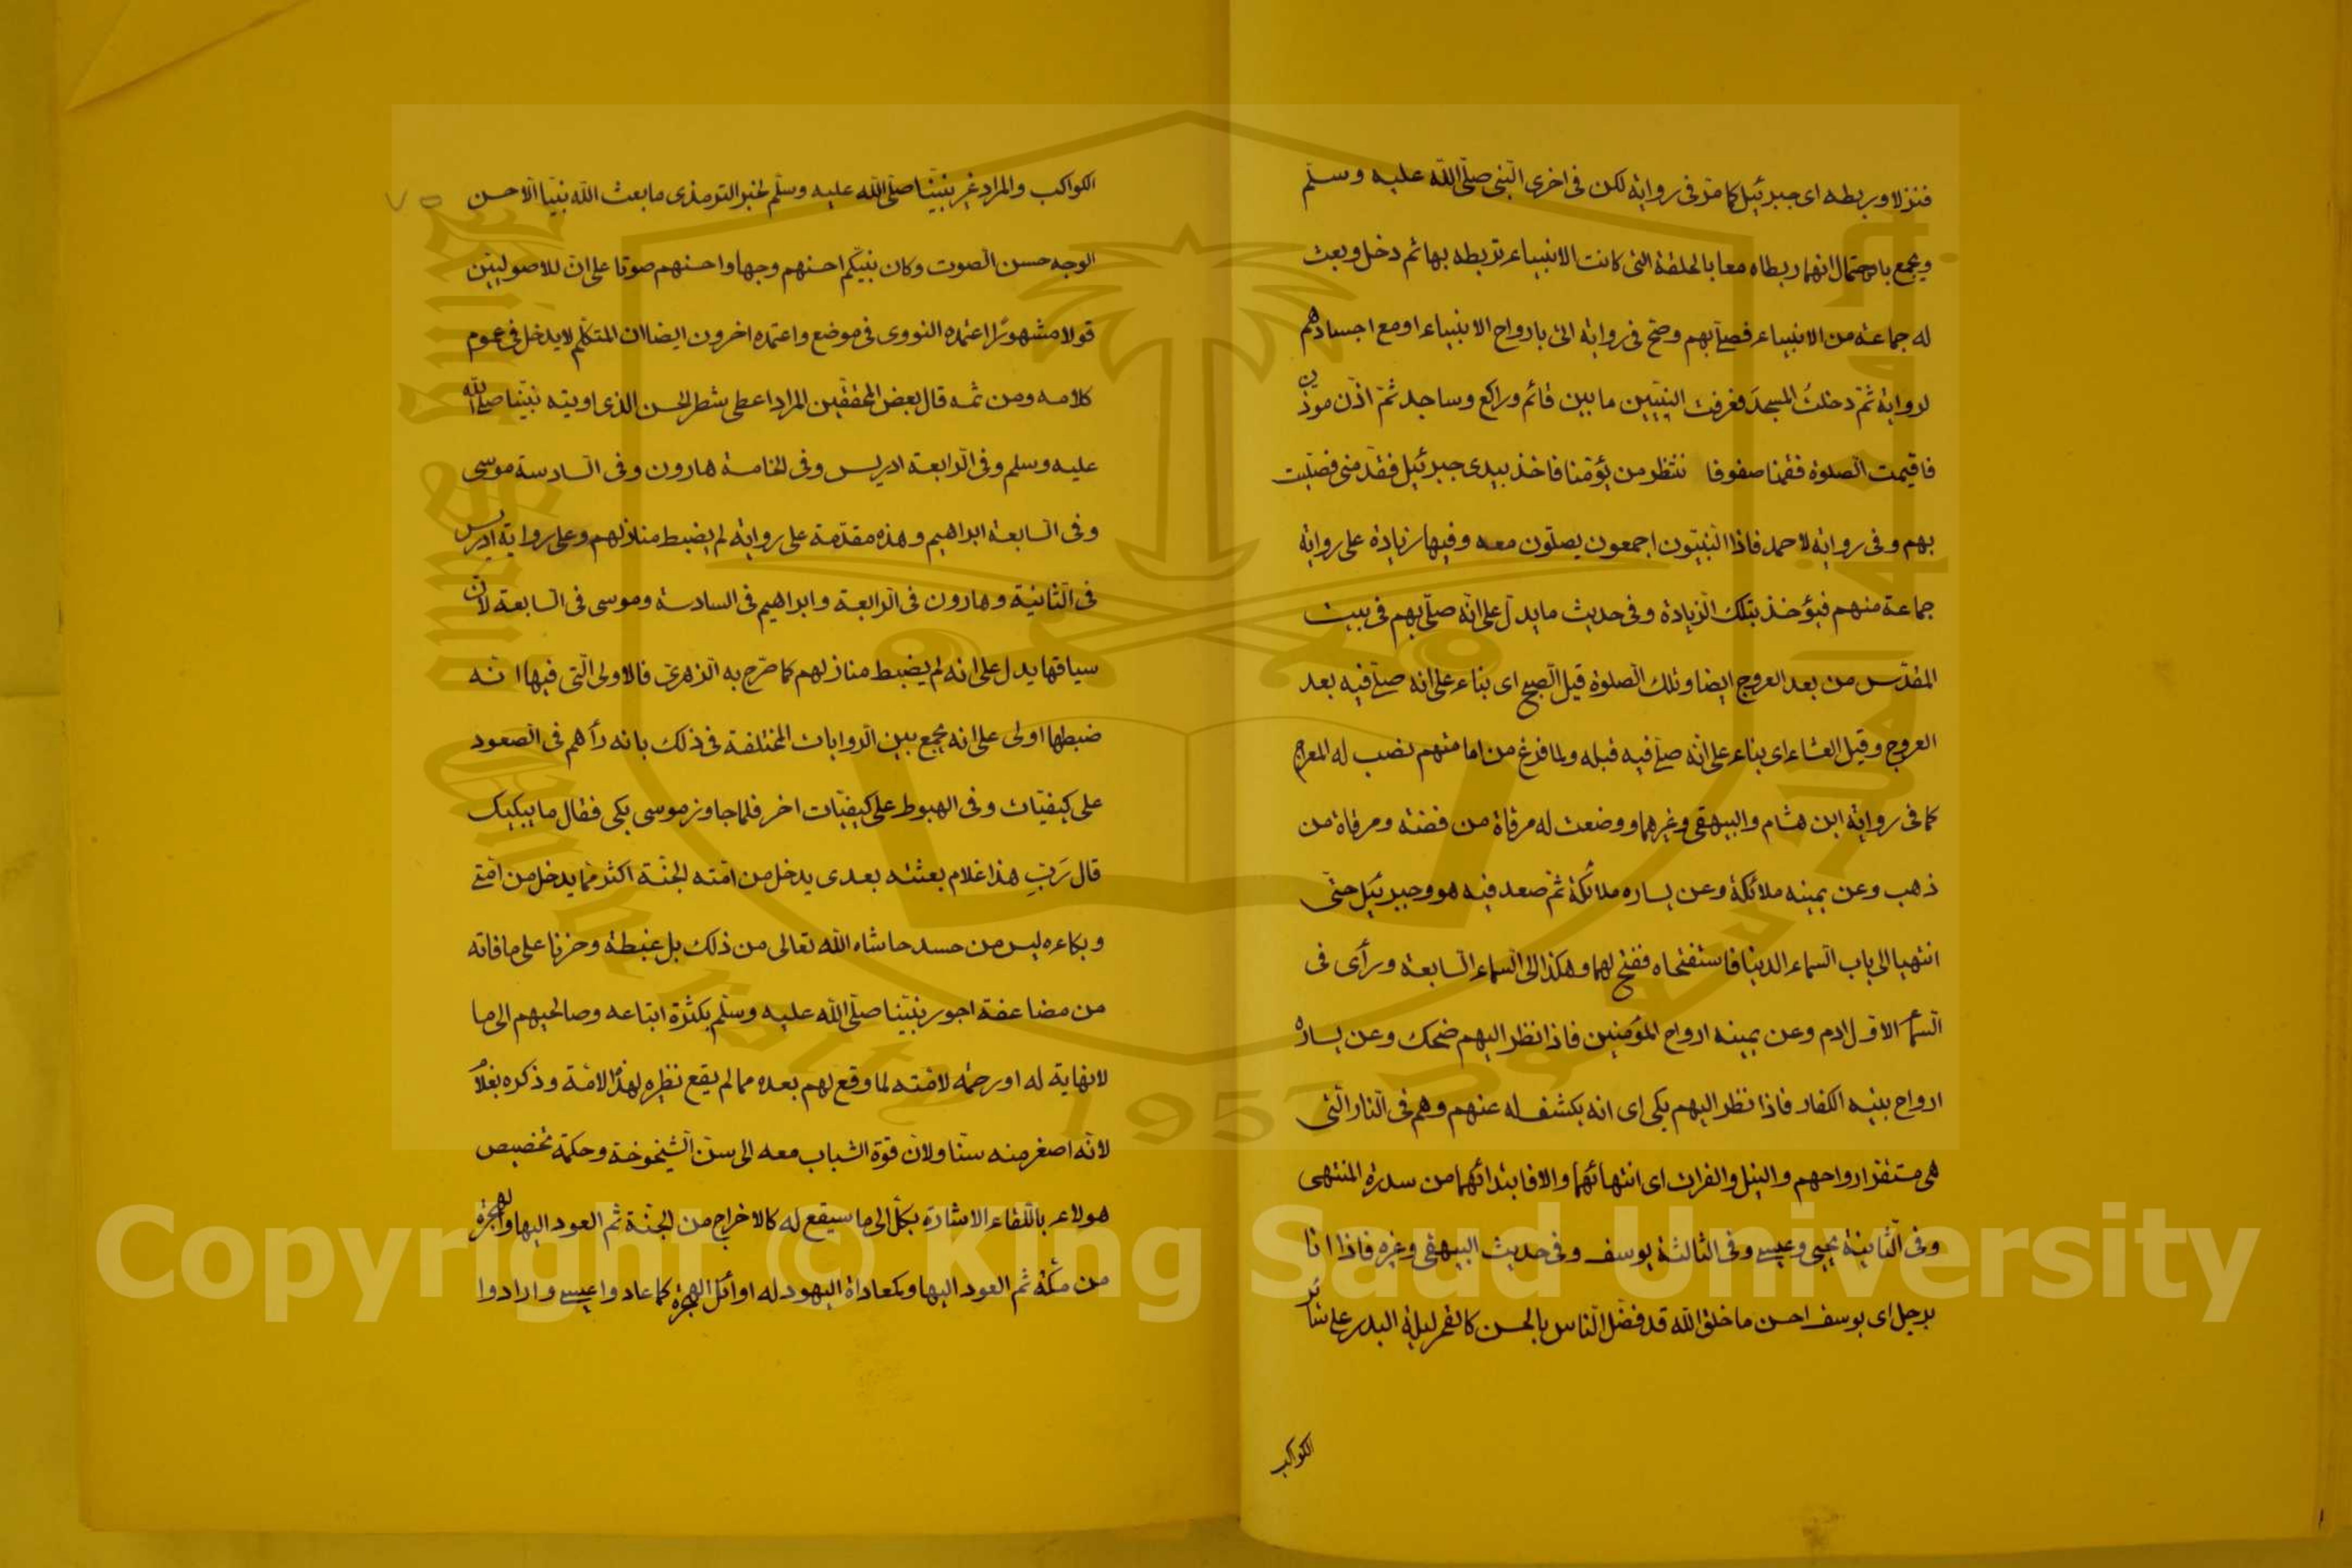 فنزلا وربطه اى جبرئيل كما مرّ فى رواية لكن فى اخرى النّبى صلّى اللّه عليه وسلّم
ويجمع باحتمال انهما ربطاه معا بالحلقة التى كانت الانبياء تربطه بها ثم دخل وبعث
له جماعة من الانبياء فصلّى بهم وصحّ فى رواية اى بارواح الانبياء او مع اجسادهم
لرواية ثمّ دخلتُ المسجدَ فعرفت النبيّين ما بين قائم وراكع وساجد ثمّ اذّن موذّن
فاقيمت الصلوة فقمنا صفوفا ننتظر من يؤمّنا فاخذ بيدى جبرئيل فقدّمنى فصلّيت
بهم وفى رواية لاحمد فاذا النّبيّون اجمعون يصلّون معه وفيها زيادة على رواية
جماعة منهم فيؤخذ بتلك الزّيادة وفى حديث ما يدلّ على انّه صلّى بهم فى بيت
المقدّس من بعد العروج ايضا وتلك الصّلوة قيل الصّبح اى بناء على انه صلّى فيه بعد
العروج وقيل العشاء اى بناء على انّه صلّى فيه قبله ولما فرغ من امامتهم نصب له المعراج
كما فى رواية ابن هشام والبيهقى وغيرهما ووضعت له مرقاة من فضة ومرقاة من
ذهب وعن يمينه ملائكة وعن يساره ملائكة ثمّ صعد فيه هو وجبرئيل حتّى
انتهيا الى باب السّماء الدنيا فاستفتحاه ففتح لهما وهكذا الى السّماء السّابعة ورأى فى
السّماء الاوّل ادم وعن يمينه ارواح المؤمنين فاذا نظر اليهم ضحك وعن يساره
ارواح بنيه الكفار فاذا نظر اليهم بكى اى انه يكشف له عنهم وهم فى النّار الّتى
هى مستقرّ ارواحهم والنيل والفرات اى انتهائهما والا فابتدائهما من سدرة المنتهى
وفى الثّانية يحيى وعيسى وفى الثالثة يوسف وفى حديث البيهقى وغيره فاذا انا
برجل اى يوسف احسن ما خلق اللّه قد فضّل النّاس بالحسن كالقمر ليلة البدر على سائر
الكواكب
٧٥
الكواكب والمراد غير نبيّنا صلّى اللّه عليه وسلّم لخبر الترمذى ما بعث اللّه نبيّا الّا حسن
الوجه حسن الصّوت وكان نبيّكم احسنهم وجها واحسنهم صوتا على انّ للاصوليّين
قولا مشهورًا اعتمده النووى فى موضع واعتمده اخرون ايضا ان المتكلّم لا يدخل فى عموم
كلامه ومن ثمه قال بعض المحقّقين المراد اعطى شطر الحسن الذى اوتيه نبيّنا صلى اللّه
عليه وسلم وفى الرّابعة ادريس وفى الخامسة هارون وفى السّادسة موسى
وفى السّابعة ابراهيم وهذه مقدّمة على رواية لم يضبط منازلهم وعلى رواية ادريس
فى الثّانية وهارون فى الرّابعة وابراهيم فى السادسة وموسى فى السّابعة لانّ
سياقها يدل على انه لم يضبط منازلهم كما صّرح به الزّهرىّ فالاولى الّتى فيها انّه
ضبطها اولى على انه يجمع بين الرّوايات المختلفة فى ذلك بانه رأهم فى الصّعود
على كيفيّات وفى الهبوط على كيفيّات اخر فلما جاوز موسى بكى فقال ما يبكيك
قال رَبّ هذا غلام بعثته بعدى يدخل من امّته الجنّة اكثر ممّا يدخل من امّتى
وبكاءه ليس من حسد حاشاه اللّه تعالى من ذلك بل غبطة وحزنا على ما فاته
من مضاعفة اجور نبيّنا صلّى اللّه عليه وسلّم بكثرة اتباعه وصالحيهم الى ما
لا نهاية له او رحمة لامّته لما وقع لهم بعده مما لم يقع نظيره لهذه الامّة وذكره بغلام
لانّه اصغر منه سنّا ولانّ قوّة الشباب معه الى سنّ الشّيخوخة وحكمة تخصيص
هولاء باللّقاء الاشارة بكلّ الى ما سيقع له كالاخراج من الجنّة ثم العود اليها والهجرة
من مكّة ثم العود اليها وكمعاداة اليهود له اوائل الهجرة كما عادوا عيسى وارادوا
Copyright © King Saud University
1957